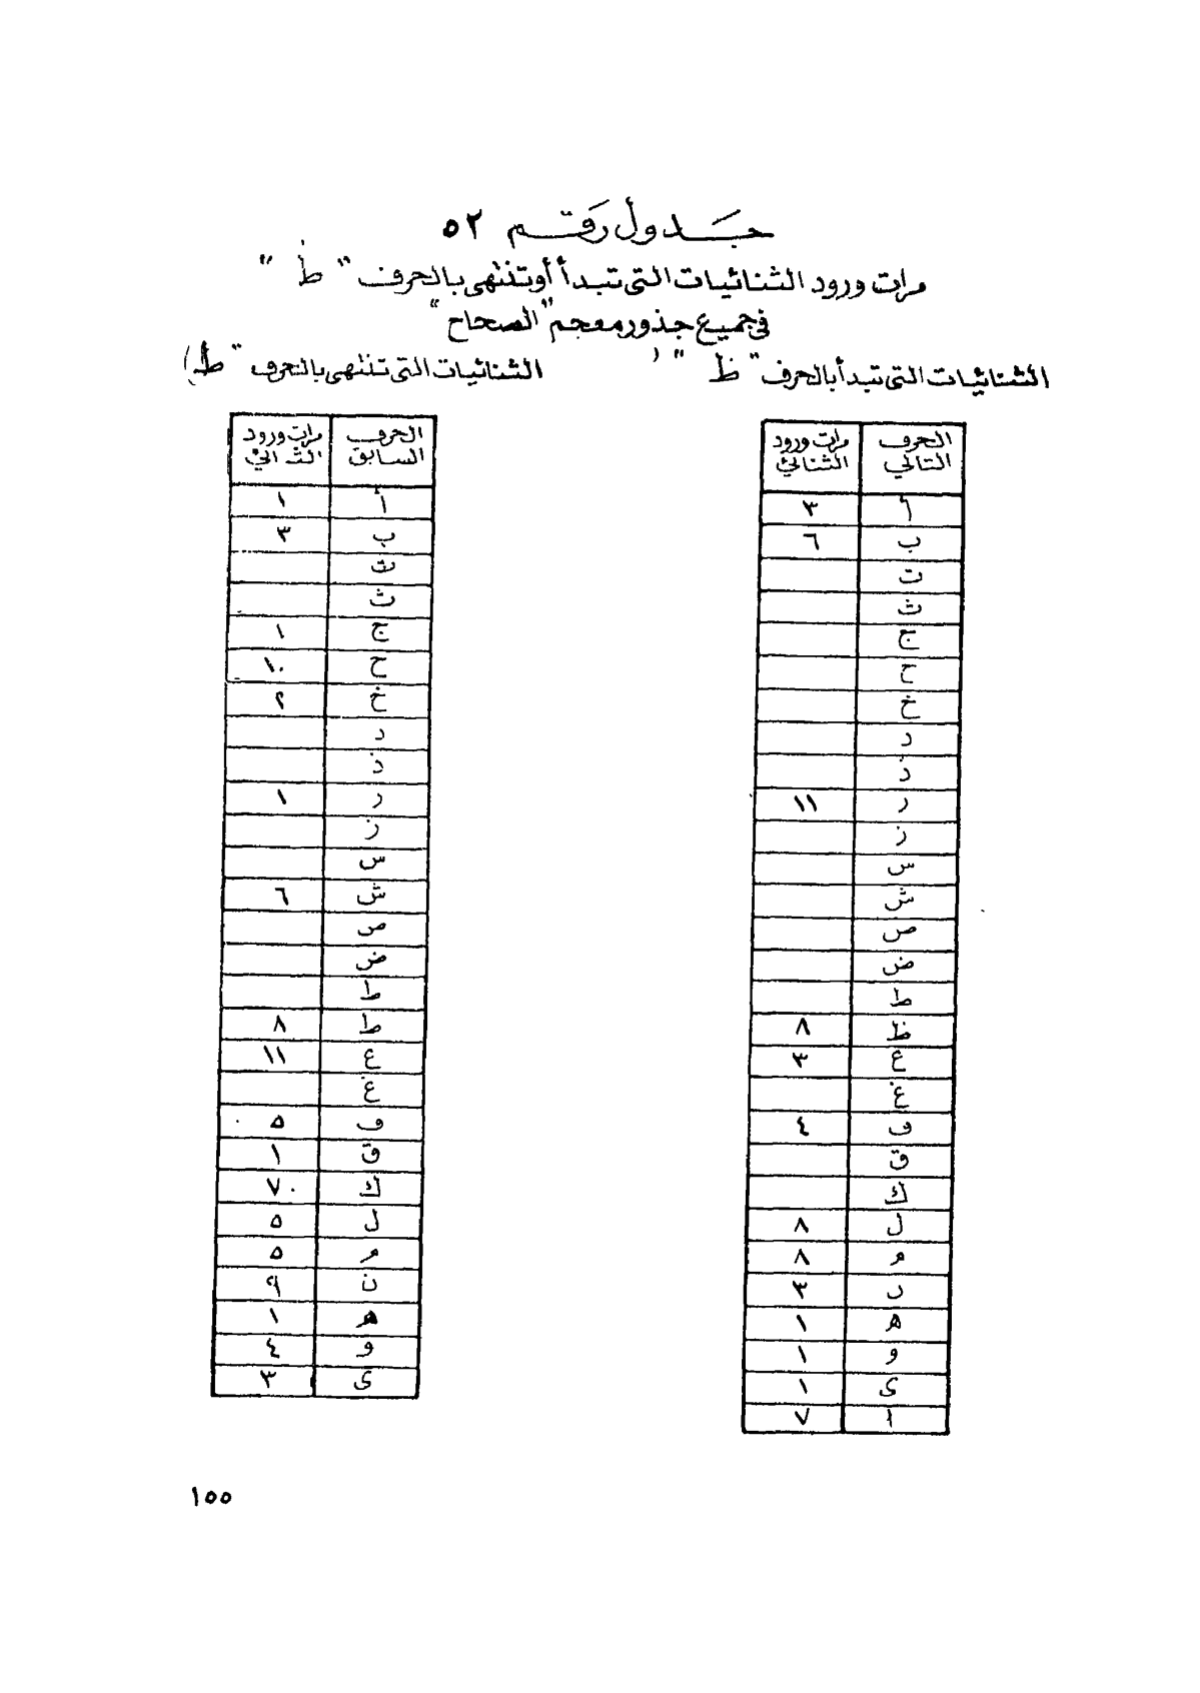 جدول رقم ٥٢
مرات ورود الثنائيات التى تبدأ أو تنتهى بالحرف " ظ "
فى جميع جذور معجم "الصحاح"
الثنائيات التى تبدأ بالحرف " ظ " (
الحرف التالي | مرات ورود الثنائي
أ | ٣
ب | ٦
ت
ث
ج
ح
خ
د
ذ
ر | ١١
ز
س
ش
ص
ض
ط
ظ | ٨
ع | ٣
غ
ف | ٤
ق
ك
ل | ٨
م | ٨
ن | ٣
ه | ١
و | ١
ى | ١
ا | ٧
الثنائيات التى تنتهى بالحرف " ظ )
الحرف السابق | مرات ورود الثنائي
أ | ١
ب | ٣
ت
ث
ج | ١
ح | ١٠
خ | ٢
د
ذ
ر | ١
ز
س
ش | ٦
ص
ض
ط
ظ | ٨
ع | ١١
غ
ف | ٥
ق | ١
ك | ٧
ل | ٥
م | ٥
ن | ٩
ه | ١
و | ٤
ى | ٣
١٥٥